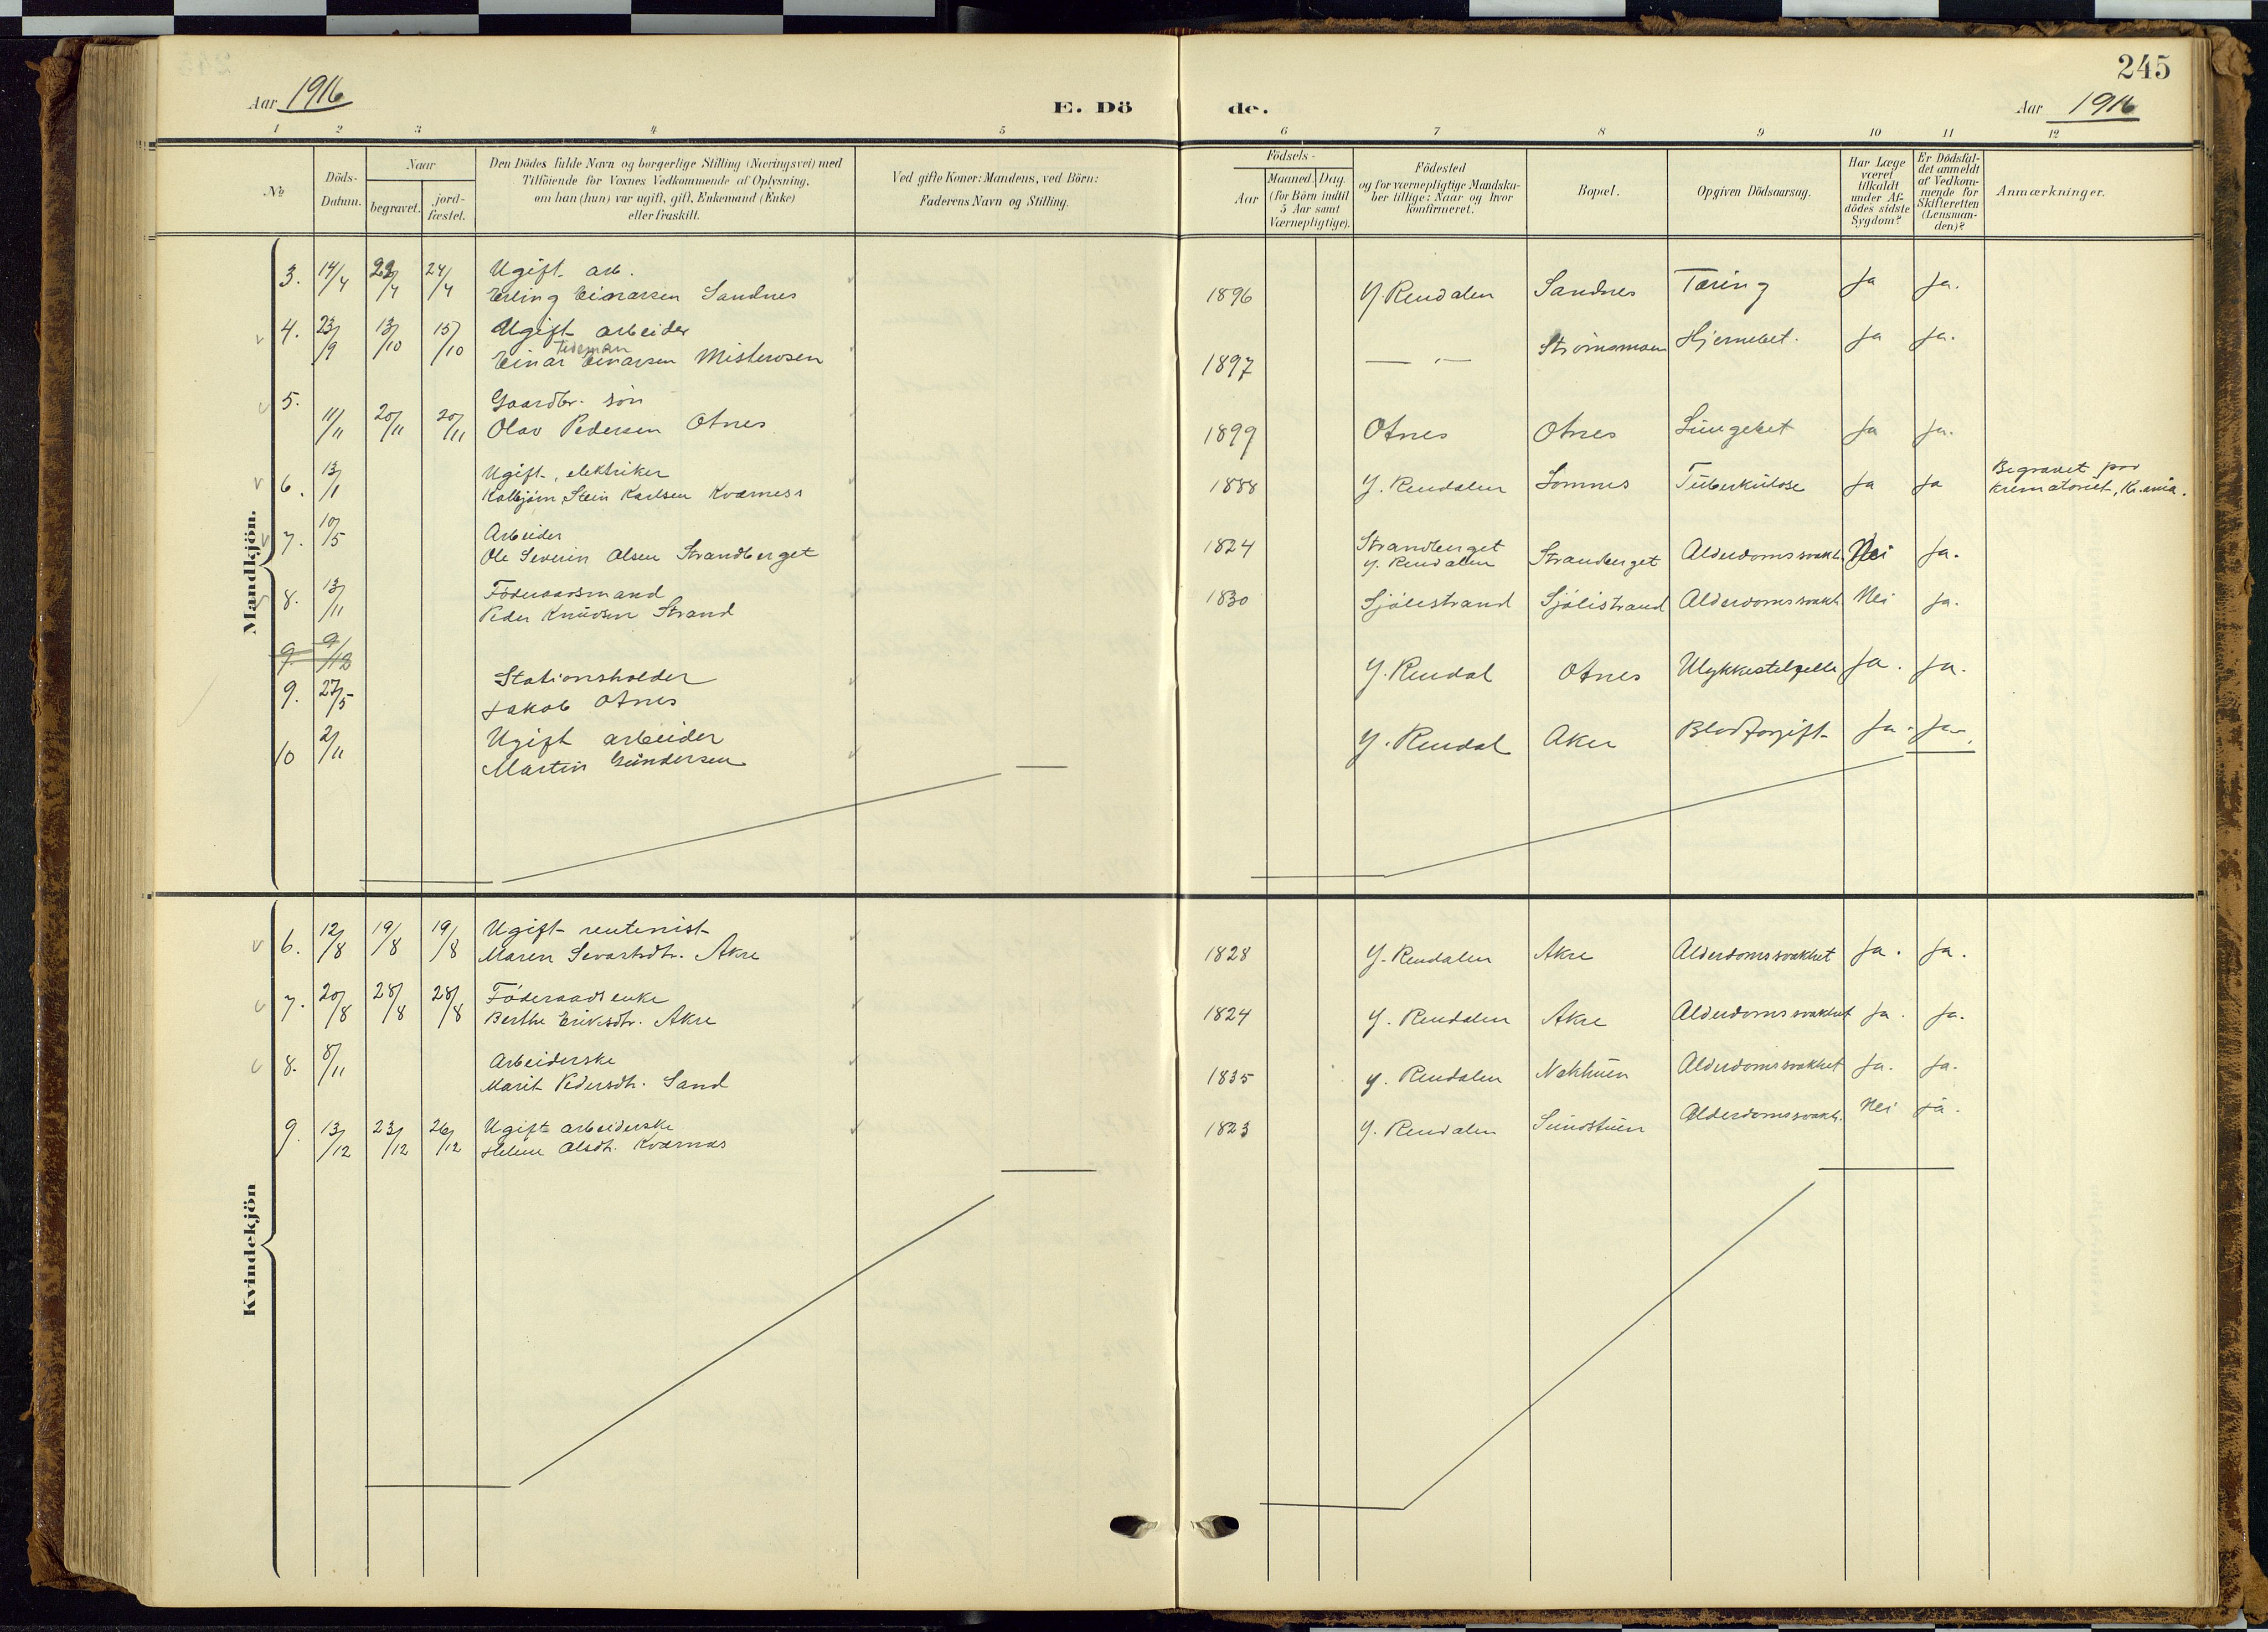 245
Aar 1916
E. Dö de.
Aar 1916
1 2 3 4 5 6 7 8 9 10 11 12
No
Döds-
Datum.
Naar
begravet.
jord-
fæstet.
Den Dödes fulde Navn og borgerlige Stilling (Næringsvei) med
Tilföiende for Voxnes Vedkommende af Oplysning,
om han (hun) var ugift, gift, Enkemand (Enke)
eller fraskilt.
Ved gifte Koner: Mandens, ved Börn:
Faderens Navn og Stilling.
Födsels-
Aar
Maaned. Dag.
(for Börn indtil
5 Aar samt
Værnepligtige).
Födested
og for værnepligtige Mandska-
ber tillige: Naar og hvor
konfirmeret.
Bopæl.
Opgiven Dödsaarsag.
Har Læge
været
tilkaldt
under Af-
dödes sidste
Sygdom?
Er Dödsfal-
det anmeldt
af Vedkom-
mende for
Skifteretten
(Lensman-
den)?
Anmærkninger.
Mandkjön.
3. 14/4 22/4 24/4 Ugift arb.
Erling Einarsen Sandnes 1896 Y. Rendalen Sandnes Tæring Ja Ja.
4. 23/9 13/10 15/10 Ugift arbeider
Tideman
Einar Einarsen Misterosen 1897 — " — Strömsmoen Hjernebet. Ja Ja.
5. Gaardbr. sön
11/11 20/11 20/11 Olav Pedersen Otnes 1899 Otnes Otnes Lungebet Ja Ja.
6. 13/1 Ugift, elektriker
Kolbjörn Stein Karlsen Kværness 1888 Y. Rendalen Lomnes Tuberkulose Ja Ja
Begravet paa
krematoriet, Kr.ania.
7. 10/5 Arbeider
Ole Severin Olsen Strandberget 1824 Strandberget
Y. Rendalen Strandberget Alderdomssvakh. Nei Ja.
8. 13/11 Föderaadsmand
Peder Knudsen Strand 1830 Sjölistrand Sjölistrand Alderdomssvakh Nei Ja.
9. 9/12
9. 27/5 Stationsholder
Jakob Otnes Y. Rendal Otnes Ulykkestilfelle Ja. Ja.
10 2/11 Ugift arbeider
Martin Gundersen Y. Rendal Aker Blodforgift Ja. Ja.
Kvindekjön
6. 12/8 19/8 19/8 Ugift rentenist
Maren Sevartsdtr. Akre 1828 Y. Rendalen Akre Alderdomssvakhet Ja. Ja.
7. 20/8 28/8 28/8 Föderaads enke
Berthe Eriksdtr. Akre 1824 Y. Rendalen Akre Alderdomssvakhet Ja. Ja.
8. 8/11 Arbeiderske
Marit Pedersdtr. Sand 1835 Y. Rendalen Nekkuen Alderdomssvakhet Ja. Ja.
9. 13/12 23/12 26/12 Ugift arbeiderske
Helene Olsdtr. Kværnæs 1823 Y. Rendalen Sundstuen Alderdomssvakh. Nei Ja.